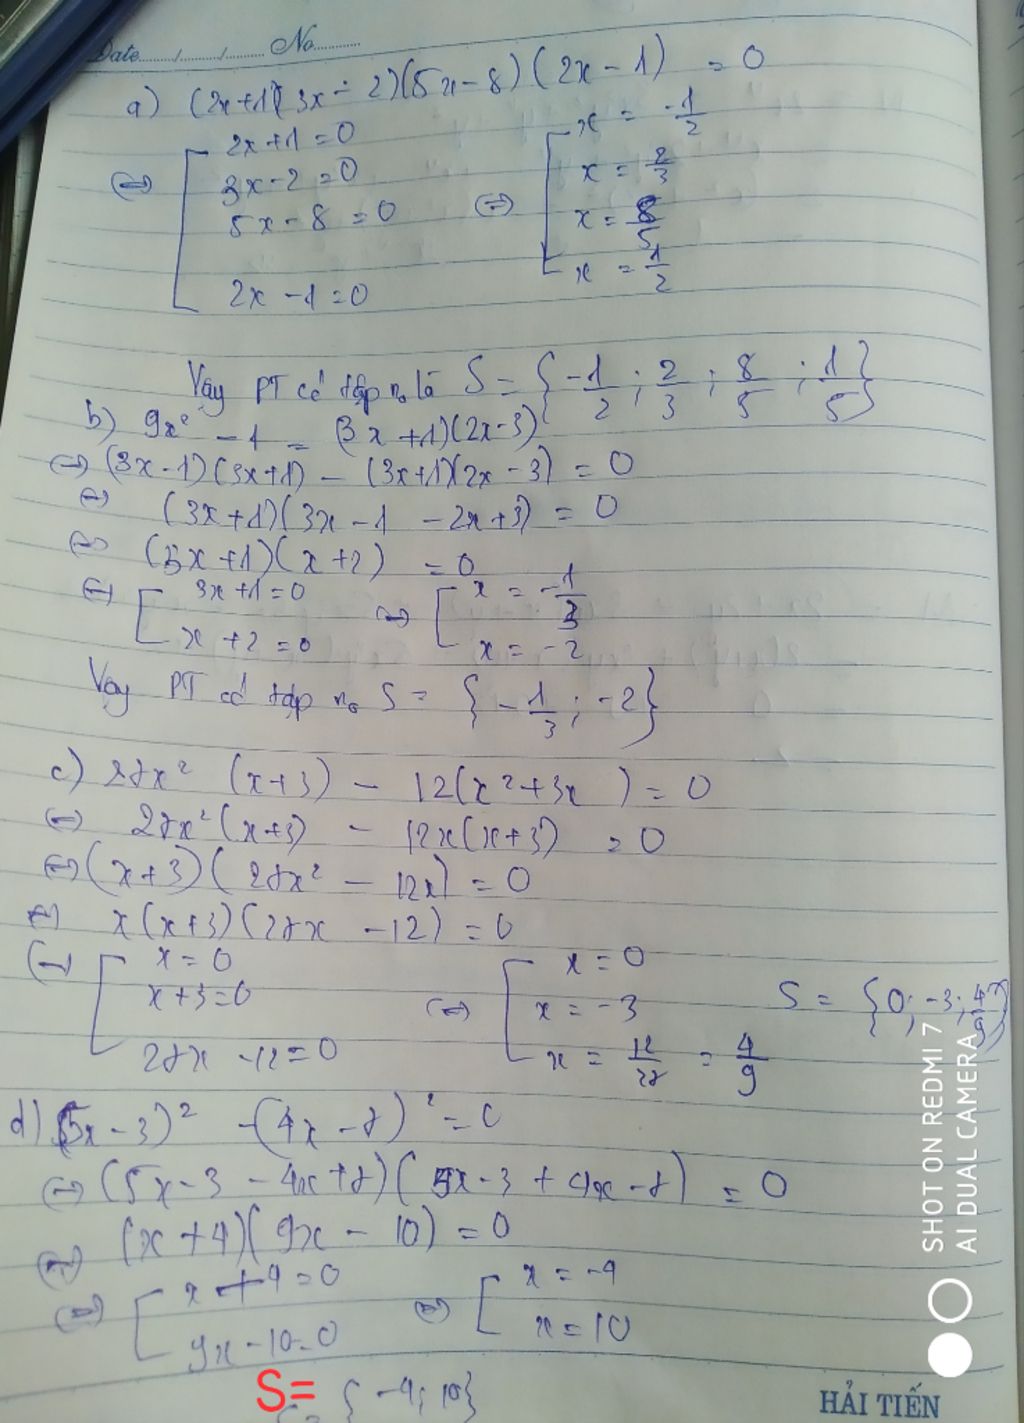 Date...../...../........ No...........
a) (2x+1)(3x-2)(5x-8)(2x-1) = 0
⇔ [ 2x+1=0 ⇔ [ x = -1/2
3x-2=0 x = 2/3
5x-8=0 x = 8/5
2x-1=0 x = 1/2
Vậy PT có tập no là S = { -1/2 ; 2/3 ; 8/5 ; 1/5 }
b) 9x² - 1 = (3x+1)(2x-3)
⇔ (3x-1)(3x+1) - (3x+1)(2x-3) = 0
⇔ (3x+1)(3x-1-2x+3) = 0
⇔ (3x+1)(x+2) = 0
⇔ [ 3x+1=0 ⇔ [ x = -1/3
x+2=0 x = -2
Vậy PT có tập no S = { -1/3 ; -2 }
c) 27x² (x+3) - 12(x²+3x) = 0
⇔ 27x²(x+3) - 12x(x+3) = 0
⇔ (x+3)(27x² - 12x) = 0
⇔ x(x+3)(27x - 12) = 0
⇔ [ x=0 ⇔ [ x=0
x+3=0 x = -3 S = {0; -3; 4/9}
27x-12=0 x = 12/27 = 4/9
d) (5x-3)² - (4x-7)² = 0
⇔ (5x-3-4x+7)(5x-3+4x-7) = 0
⇔ (x+4)(9x-10) = 0
⇔ [ x+4=0 ⇔ [ x = -4
9x-10=0 x = 10
S= { -4; 10}
SHOT ON REDMI 7
AI DUAL CAMERA
HẢI TIẾN